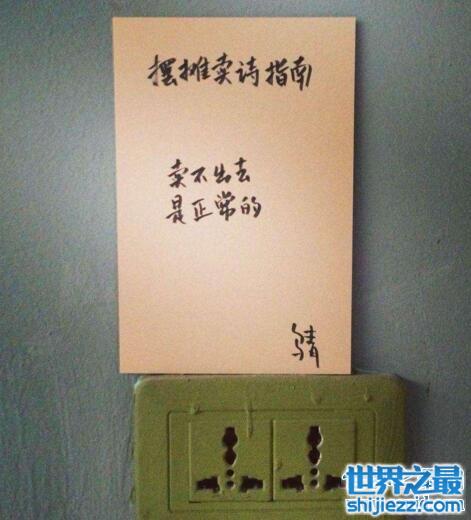 摆摊卖诗指南
卖不出去
是正常的
世界之最
shijiezz.com